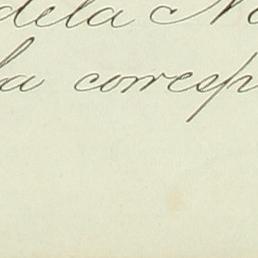 de la
la corresp